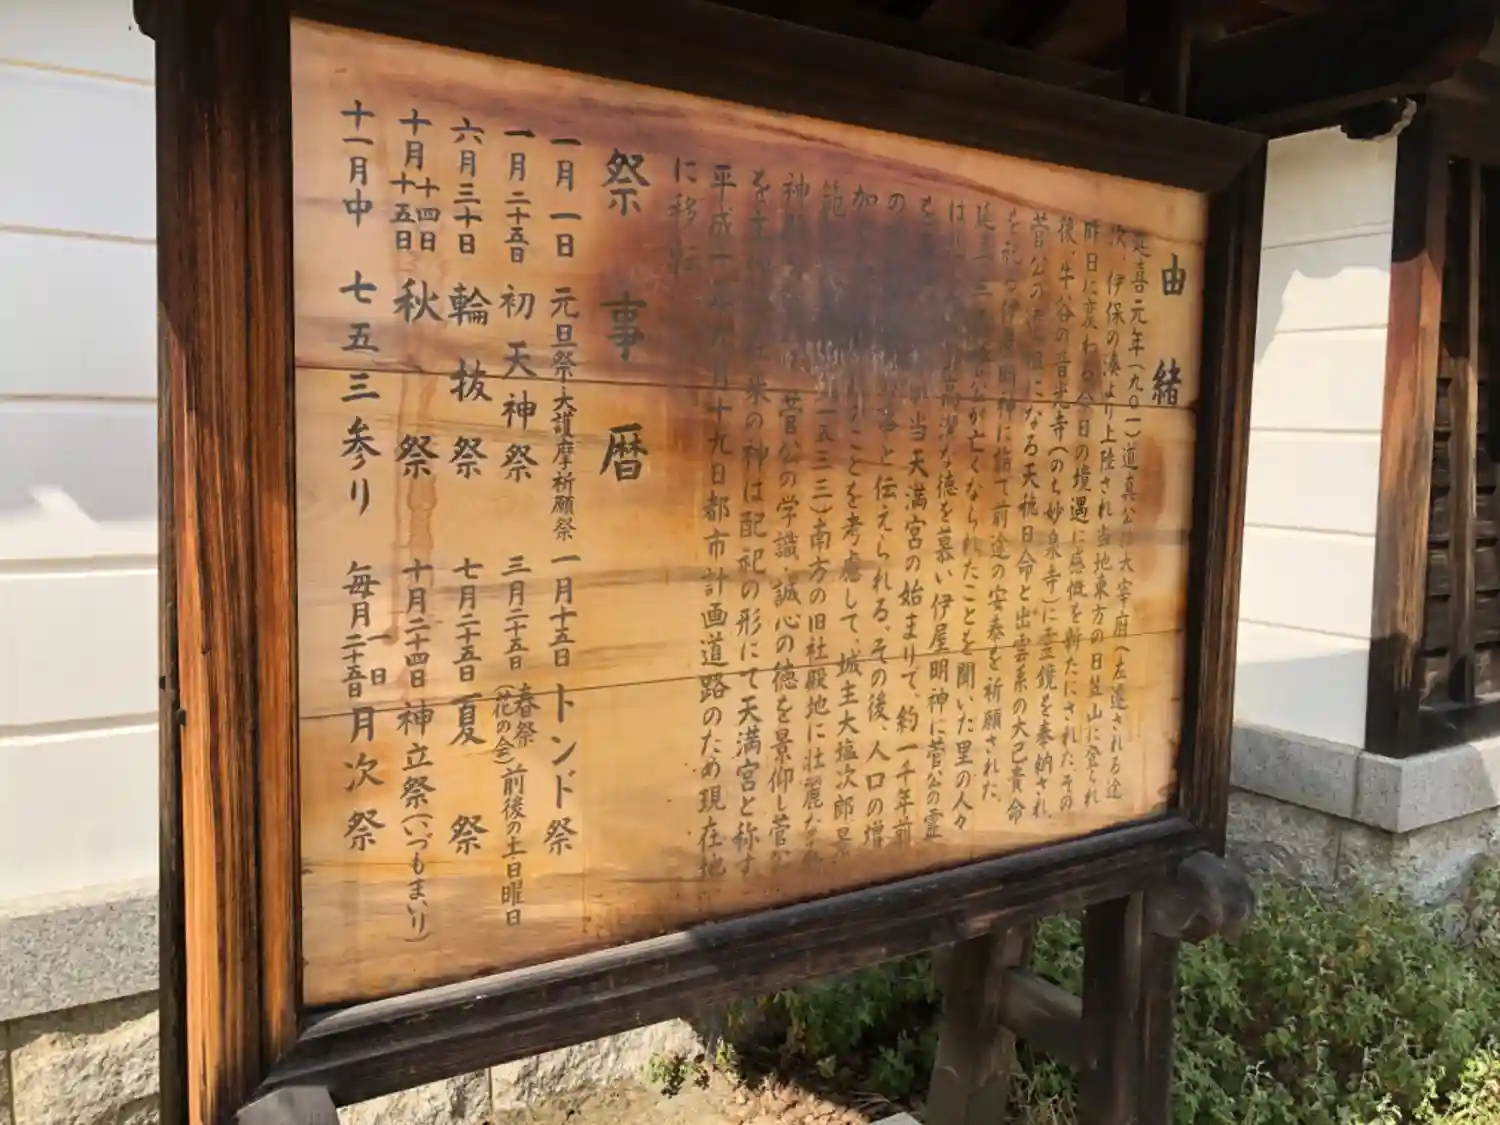 由緒
延喜元年(九〇一)道真公は大宰府へ左遷される途
次、伊保の湊より上陸され当地東方の日笠山に登られ
昨日に変わる今日の境遇に感慨を新たにされた。その
後、牛谷の昔光寺(のち妙泉寺)に霊鏡を奉納され、
菅公の遠祖になる天穂日命と出雲系の大己貴命
を祀る伊屋明神に詣で前途の安泰を祈願された。
延喜三 菅公が亡くなられたことを聞いた里の人々
は 高潔な徳を慕い伊屋明神に菅公の霊
を 当天満宮の始まりで、約一千年前
の と伝えられる。その後、人口の増
加 ことを考慮して、城主大塩次郎景
範 一五三三)南方の旧社殿地に壮麗な
神殿 菅公の学識・誠心の徳を景仰し菅公
を主 来の神は配祀の形にて天満宮と称す
平成十 月十九日都市計画道路のため現在地
に移転
祭事暦
一月一日 元旦祭・大護摩祈願祭 一月十五日 トンド祭
一月二十五日 初天神祭 三月二十五日 春祭(花の会)前後の土・日曜日
六月三十日 輪抜祭 七月二十五日 夏祭
十月十四日十五日 秋祭 十月二十四日 神立祭(いづもまいり)
十一月中 七五三参り 毎月一日二十五日 月次祭